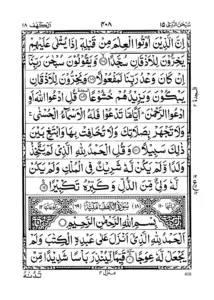 الكهف ١٨ ٣٠٨ سبحن الذي ١٥
اِنَّ الَّذِيْنَ اُوْتُوا الْعِلْمَ مِنْ قَبْلِهٖۤ اِذَا يُتْلٰى عَلَيْهِمْ
يَخِرُّوْنَ لِلْاَذْقَانِ سُجَّدًا وَّيَقُوْلُوْنَ سُبْحٰنَ رَبِّنَاۤ
اِنْ كَانَ وَعْدُ رَبِّنَا لَمَفْعُوْلًا وَيَخِرُّوْنَ لِلْاَذْقَانِ
يَبْكُوْنَ وَيَزِيْدُهُمْ خُشُوْعًا قُلِ ادْعُوا اللّٰهَ اَوِ
ادْعُوا الرَّحْمٰنَ اَيًّا مَّا تَدْعُوْا فَلَهُ الْاَسْمَآءُ الْحُسْنٰى
وَلَا تَجْهَرْ بِصَلَاتِكَ وَلَا تُخَافِتْ بِهَا وَابْتَغِ بَيْنَ
ذٰلِكَ سَبِيْلًا وَقُلِ الْحَمْدُ لِلّٰهِ الَّذِيْ لَمْ يَتَّخِذْ
وَلَدًا وَّلَمْ يَكُنْ لَّهٗ شَرِيْكٌ فِي الْمُلْكِ وَلَمْ يَكُنْ
لَّهٗ وَلِيٌّ مِّنَ الذُّلِّ وَكَبِّرْهُ تَكْبِيْرًا
سُوْرَةُ الْكَهْفِ
بِسْمِ اللّٰهِ الرَّحْمٰنِ الرَّحِيْمِ
اَلْحَمْدُ لِلّٰهِ الَّذِيْۤ اَنْزَلَ عَلٰى عَبْدِهِ الْكِتٰبَ وَلَمْ
يَجْعَلْ لَّهٗ عِوَجًا قَيِّمًا لِّيُنْذِرَ بَاْسًا شَدِيْدًا مِّنْ